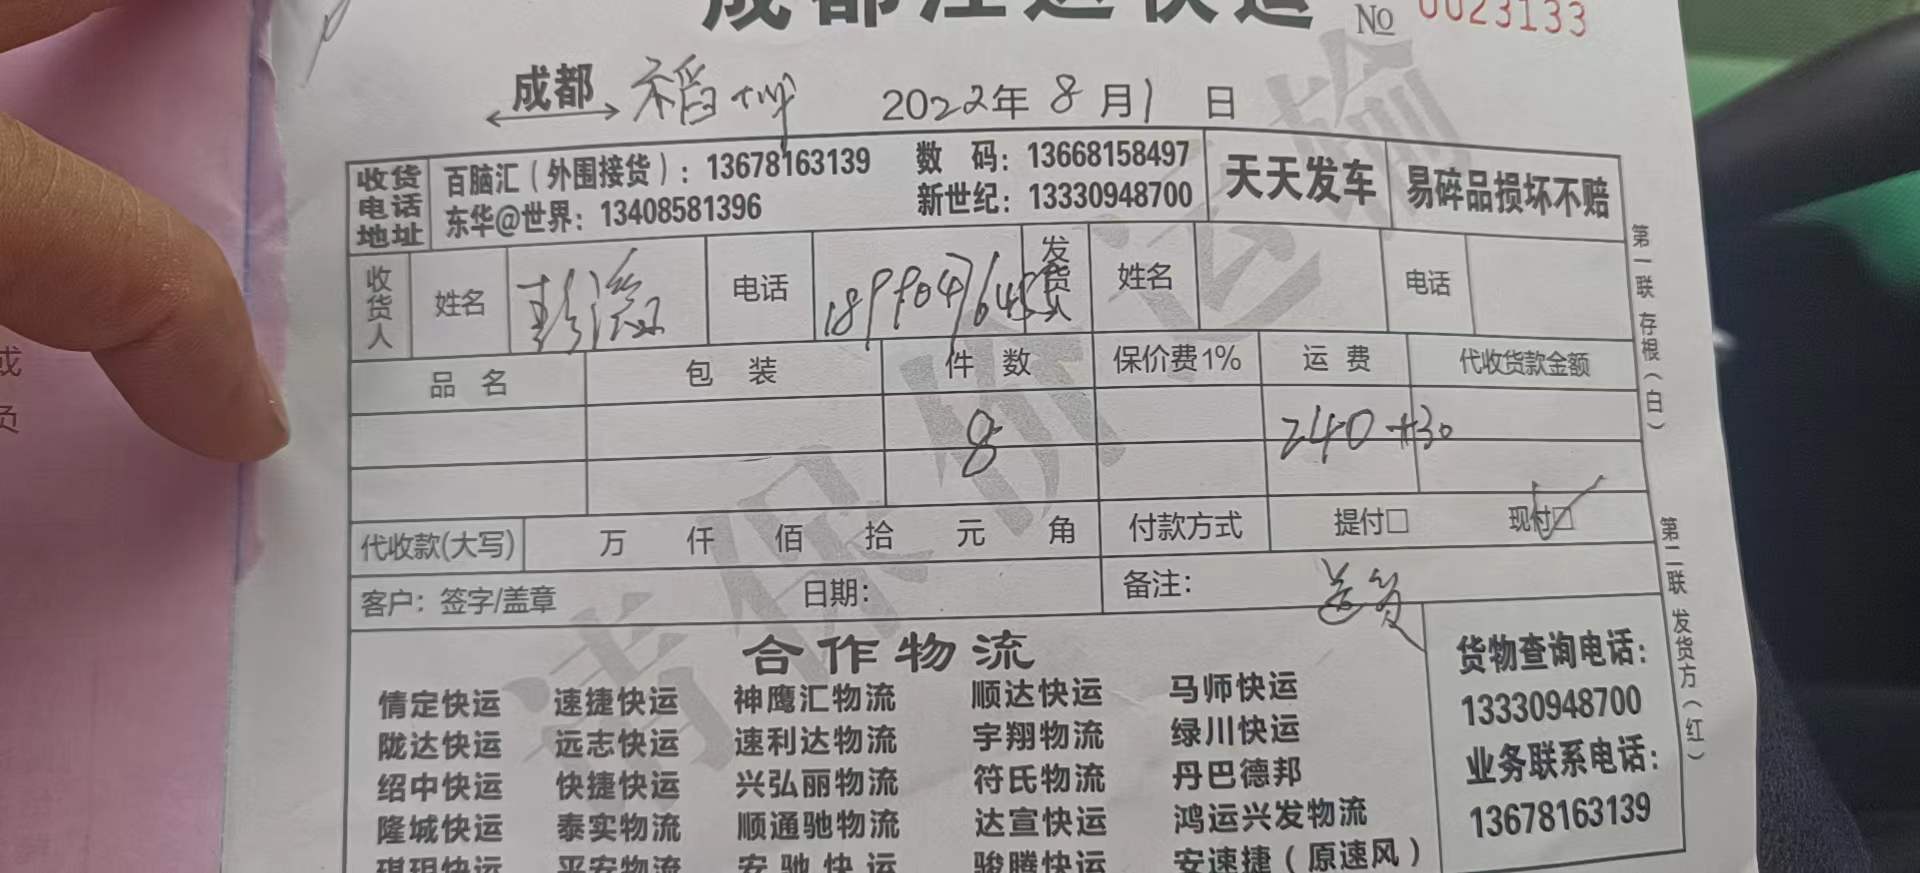 成都江达快运 No 0023133
成都 稻城 2022年 8月1日
收货电话地址 百脑汇（外围接货）：13678163139 数 码：13668158497 天天发车 易碎品损坏不赔
东华@世界：13408581396 新世纪：13330948700
收货人 姓名 彭 电话 发货人 姓名 电话
品 名 包 装 件 数 保价费1% 运 费 代收货款金额
8 240+30
代收款(大写) 万 仟 佰 拾 元 角 付款方式 提付□ 现付☑
客户：签字/盖章 日期： 备注： 送货
合作物流
倩定快运 速捷快运 神鹰汇物流 顺达快运 马师快运
陇达快运 远志快运 速利达物流 宇翔物流 绿川快运
绍中快运 快捷快运 兴弘丽物流 符氏物流 丹巴德邦
隆城快运 泰实物流 顺通驰物流 达宣快运 鸿运兴发物流
琪玥快运 平安物流 安驰快运 骏腾快运 安速捷（原速风）
货物查询电话：
13330948700
业务联系电话：
13678163139
第一联 存根（白）
第二联 发货方（红）
请保价运输